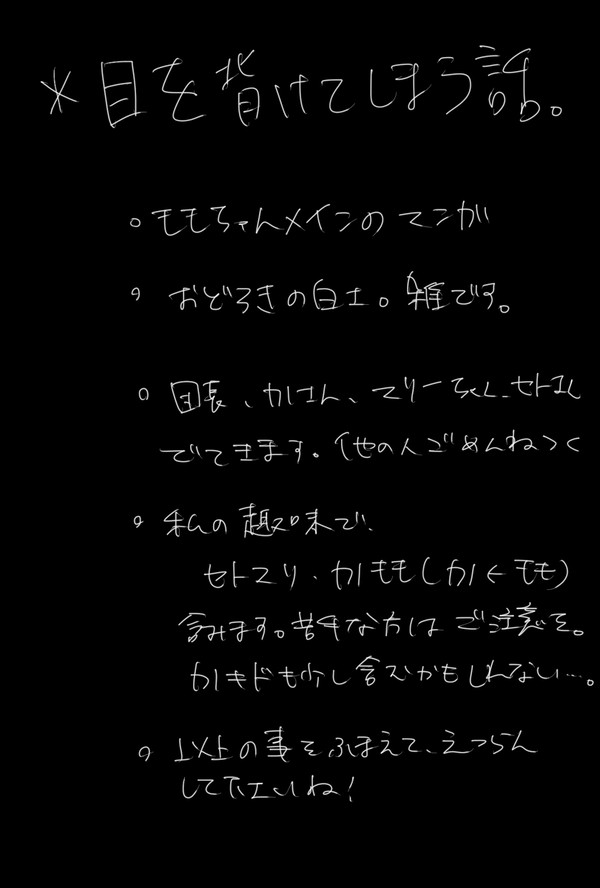 *目を背けてしまう話。
。ももちゃんメインのマンガ
。おどろきの白士。雑です。
。団長、カノさん、マリーちゃん、セトさん
でてきます。他の人ごめんねっく
。私の趣味で、
セトマリ・カノモモ(カノ←モモ)
含みます。苦手な方はご注意を。
カノキドも少し含むかもしれない…。
。以上の事をふまえて、えつらん
して下エいね!